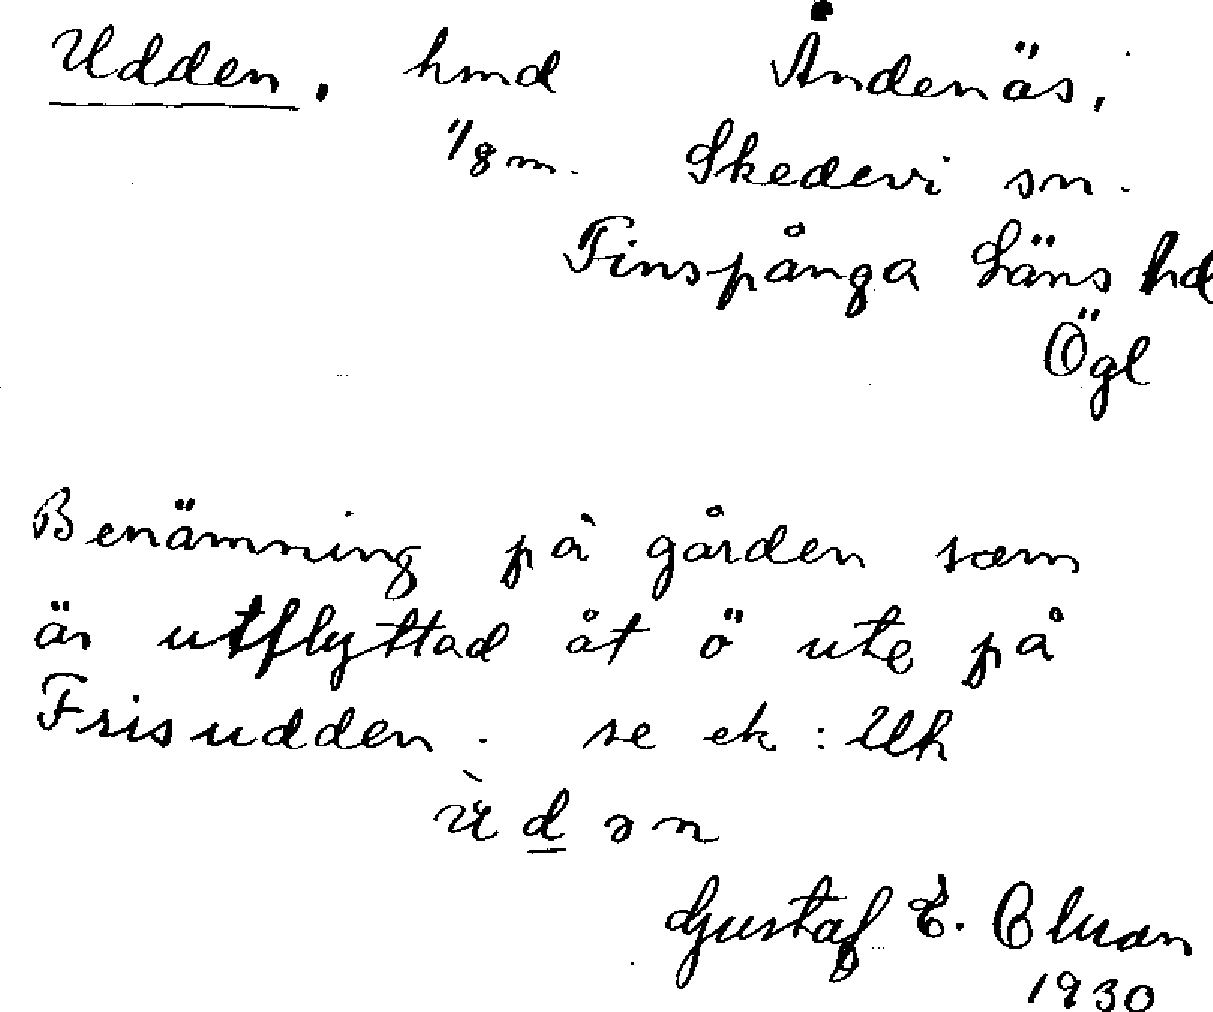 Udden, hmd Åndenäs,
1/8 m. Skedevi sn.
Finspånga Läns hd
Ögl
Benämning på gården som
är utflyttad åt ö ute på
Frisudden. se ek: Uh
dən
Gustaf E.
1930